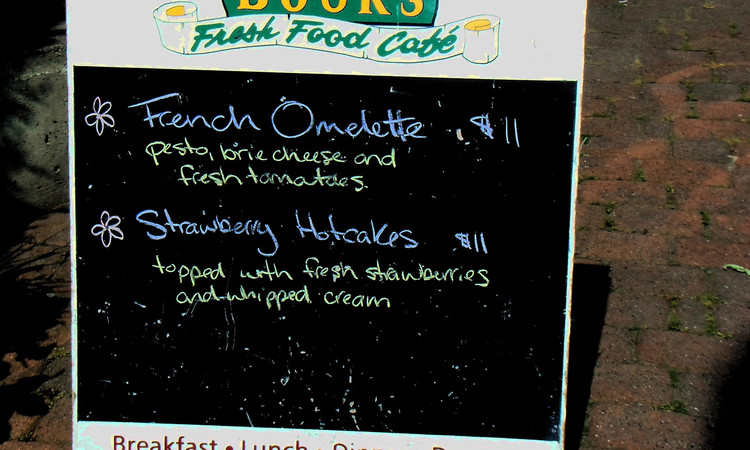 BOOKS
Fresh Food Café
French Omelette . $11
pesto, brie cheese and
fresh tomatoes.
Strawberry Hotcakes $11
topped with fresh strawberries
and whipped cream
Breakfast • Lunch •